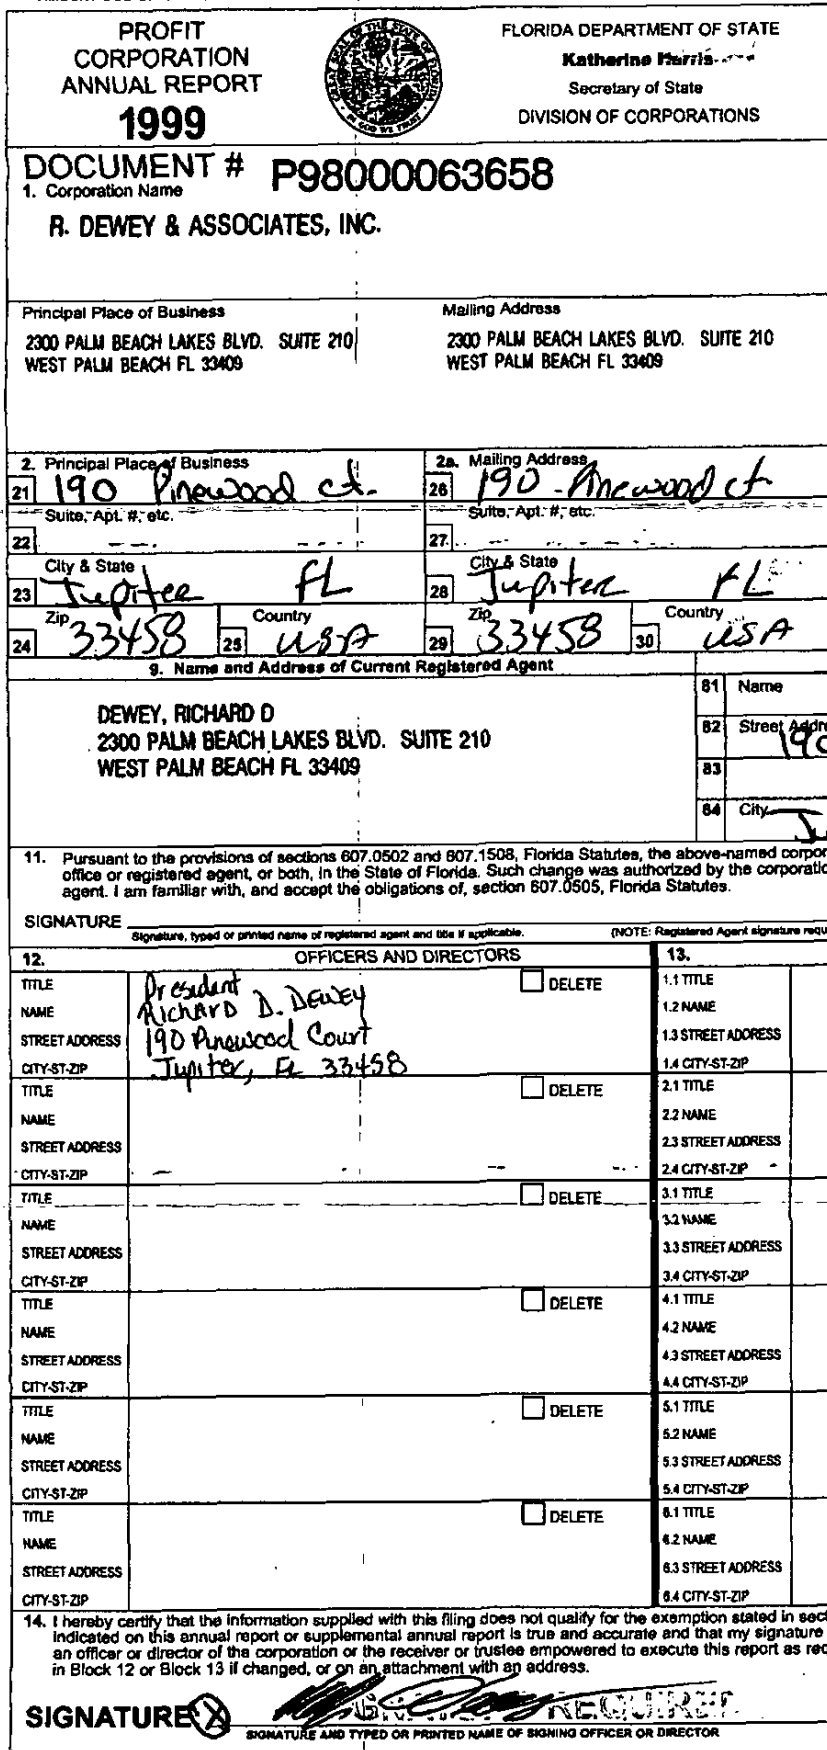 PROFIT
CORPORATION
ANNUAL REPORT
1999
FLORIDA DEPARTMENT OF STATE
Katherine Harris
Secretary of State
DIVISION OF CORPORATIONS
DOCUMENT # P98000063658
1. Corporation Name
R. DEWEY & ASSOCIATES, INC.
Principal Place of Business
2300 PALM BEACH LAKES BLVD. SUITE 210
WEST PALM BEACH FL 33409
Mailing Address
2300 PALM BEACH LAKES BLVD. SUITE 210
WEST PALM BEACH FL 33409
2. Principal Place of Business
21 190 Pinewood ct.
2a. Mailing Address
26 190 Pinewood ct
Suite, Apt. #, etc.
22
Suite, Apt. #, etc.
27
City & State
23 Jupiter FL
City & State
28 Jupiter FL
Zip
24 33458
Country
25 USA
Zip
29 33458
Country
30 USA
9. Name and Address of Current Registered Agent
DEWEY, RICHARD D
2300 PALM BEACH LAKES BLVD. SUITE 210
WEST PALM BEACH FL 33409
81 Name
82 Street Addre
190
83
84 City
Ju
11. Pursuant to the provisions of sections 607.0502 and 607.1508, Florida Statutes, the above-named corpor
office or registered agent, or both, in the State of Florida. Such change was authorized by the corporatio
agent. I am familiar with, and accept the obligations of, section 607.0505, Florida Statutes.
SIGNATURE
Signature, typed or printed name of registered agent and title if applicable. (NOTE: Registered Agent signature requ
12. OFFICERS AND DIRECTORS 13.
TITLE President DELETE 1.1 TITLE
NAME RICHARD D. DEWEY 1.2 NAME
STREET ADDRESS 190 Pinewood Court 1.3 STREET ADDRESS
CITY-ST-ZIP Jupiter, FL 33458 1.4 CITY-ST-ZIP
TITLE DELETE 2.1 TITLE
NAME 2.2 NAME
STREET ADDRESS 2.3 STREET ADDRESS
CITY-ST-ZIP 2.4 CITY-ST-ZIP
TITLE DELETE 3.1 TITLE
NAME 3.2 NAME
STREET ADDRESS 3.3 STREET ADDRESS
CITY-ST-ZIP 3.4 CITY-ST-ZIP
TITLE DELETE 4.1 TITLE
NAME 4.2 NAME
STREET ADDRESS 4.3 STREET ADDRESS
CITY-ST-ZIP 4.4 CITY-ST-ZIP
TITLE DELETE 5.1 TITLE
NAME 5.2 NAME
STREET ADDRESS 5.3 STREET ADDRESS
CITY-ST-ZIP 5.4 CITY-ST-ZIP
TITLE DELETE 6.1 TITLE
NAME 6.2 NAME
STREET ADDRESS 6.3 STREET ADDRESS
CITY-ST-ZIP 6.4 CITY-ST-ZIP
14. I hereby certify that the information supplied with this filing does not qualify for the exemption stated in sect
indicated on this annual report or supplemental annual report is true and accurate and that my signature
an officer or director of the corporation or the receiver or trustee empowered to execute this report as req
in Block 12 or Block 13 if changed, or on an attachment with an address.
SIGNATURE X REQUIRED
SIGNATURE AND TYPED OR PRINTED NAME OF SIGNING OFFICER OR DIRECTOR